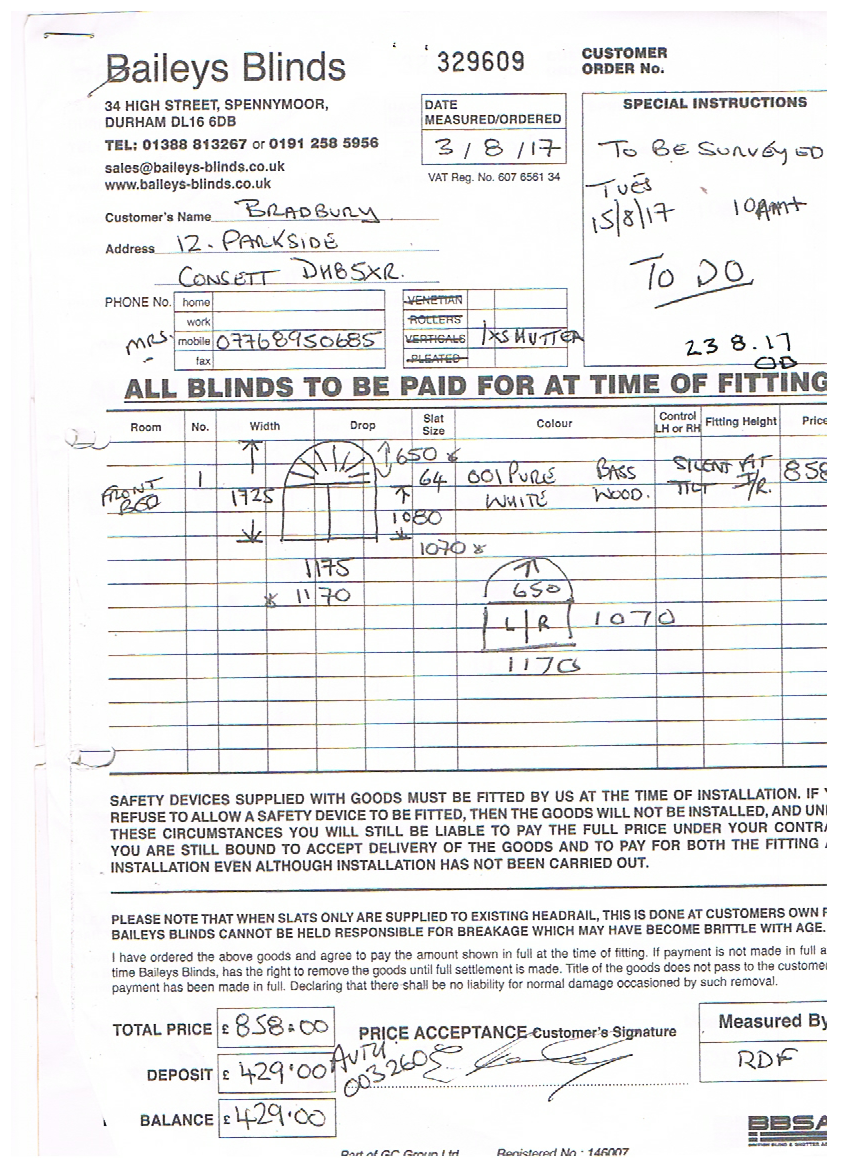 Baileys Blinds
329609
CUSTOMER
ORDER No.
34 HIGH STREET, SPENNYMOOR,
DURHAM DL16 6DB
TEL: 01388 813267 or 0191 258 5956
sales@baileys-blinds.co.uk
www.baileys-blinds.co.uk
DATE
MEASURED/ORDERED
3/8/17
VAT Reg. No. 607 6561 34
SPECIAL INSTRUCTIONS
TO BE SURVEYED
TUES
15/8/17 10AM+
TO DO
23 8.17
OD
Customer's Name BRADBURY
Address 12. PARKSIDE
CONSETT DH8 5XR.
PHONE No. home
work
MRS. mobile 07768950685
fax
VENETIAN
ROLLERS
VERTICALS 1XSHUTTER
PLEATED
ALL BLINDS TO BE PAID FOR AT TIME OF FITTING
Room No. Width Drop Slat Size Colour Control LH or RH Fitting Height Price
FRONT BED 1 1725 650 * 64 001 PURE WHITE BASS WOOD. SILENT TILT FIT I/R. 858
1080
1070 *
1175
* 1170
650
L R 1070
1170
SAFETY DEVICES SUPPLIED WITH GOODS MUST BE FITTED BY US AT THE TIME OF INSTALLATION. IF Y
REFUSE TO ALLOW A SAFETY DEVICE TO BE FITTED, THEN THE GOODS WILL NOT BE INSTALLED, AND UN
THESE CIRCUMSTANCES YOU WILL STILL BE LIABLE TO PAY THE FULL PRICE UNDER YOUR CONTRA
YOU ARE STILL BOUND TO ACCEPT DELIVERY OF THE GOODS AND TO PAY FOR BOTH THE FITTING A
INSTALLATION EVEN ALTHOUGH INSTALLATION HAS NOT BEEN CARRIED OUT.
PLEASE NOTE THAT WHEN SLATS ONLY ARE SUPPLIED TO EXISTING HEADRAIL, THIS IS DONE AT CUSTOMERS OWN R
BAILEYS BLINDS CANNOT BE HELD RESPONSIBLE FOR BREAKAGE WHICH MAY HAVE BECOME BRITTLE WITH AGE.
I have ordered the above goods and agree to pay the amount shown in full at the time of fitting. If payment is not made in full a
time Baileys Blinds, has the right to remove the goods until full settlement is made. Title of the goods does not pass to the custome
payment has been made in full. Declaring that there shall be no liability for normal damage occasioned by such removal.
TOTAL PRICE £ 858:00
PRICE ACCEPTANCE Customer's Signature
Measured By
RDF
DEPOSIT £ 429.00
AUTH
003260
BALANCE £ 429.00
BBSA
Part of GC Group Ltd Registered No: 146007